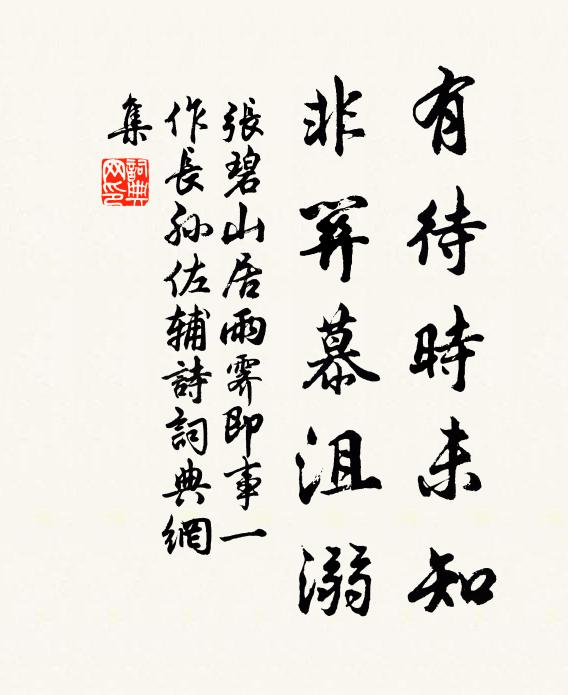 有待時未知
非關慕沮溺
張碧山居雨霽即事一
作長孫佐輔詩詞典網
集
詞典
网印